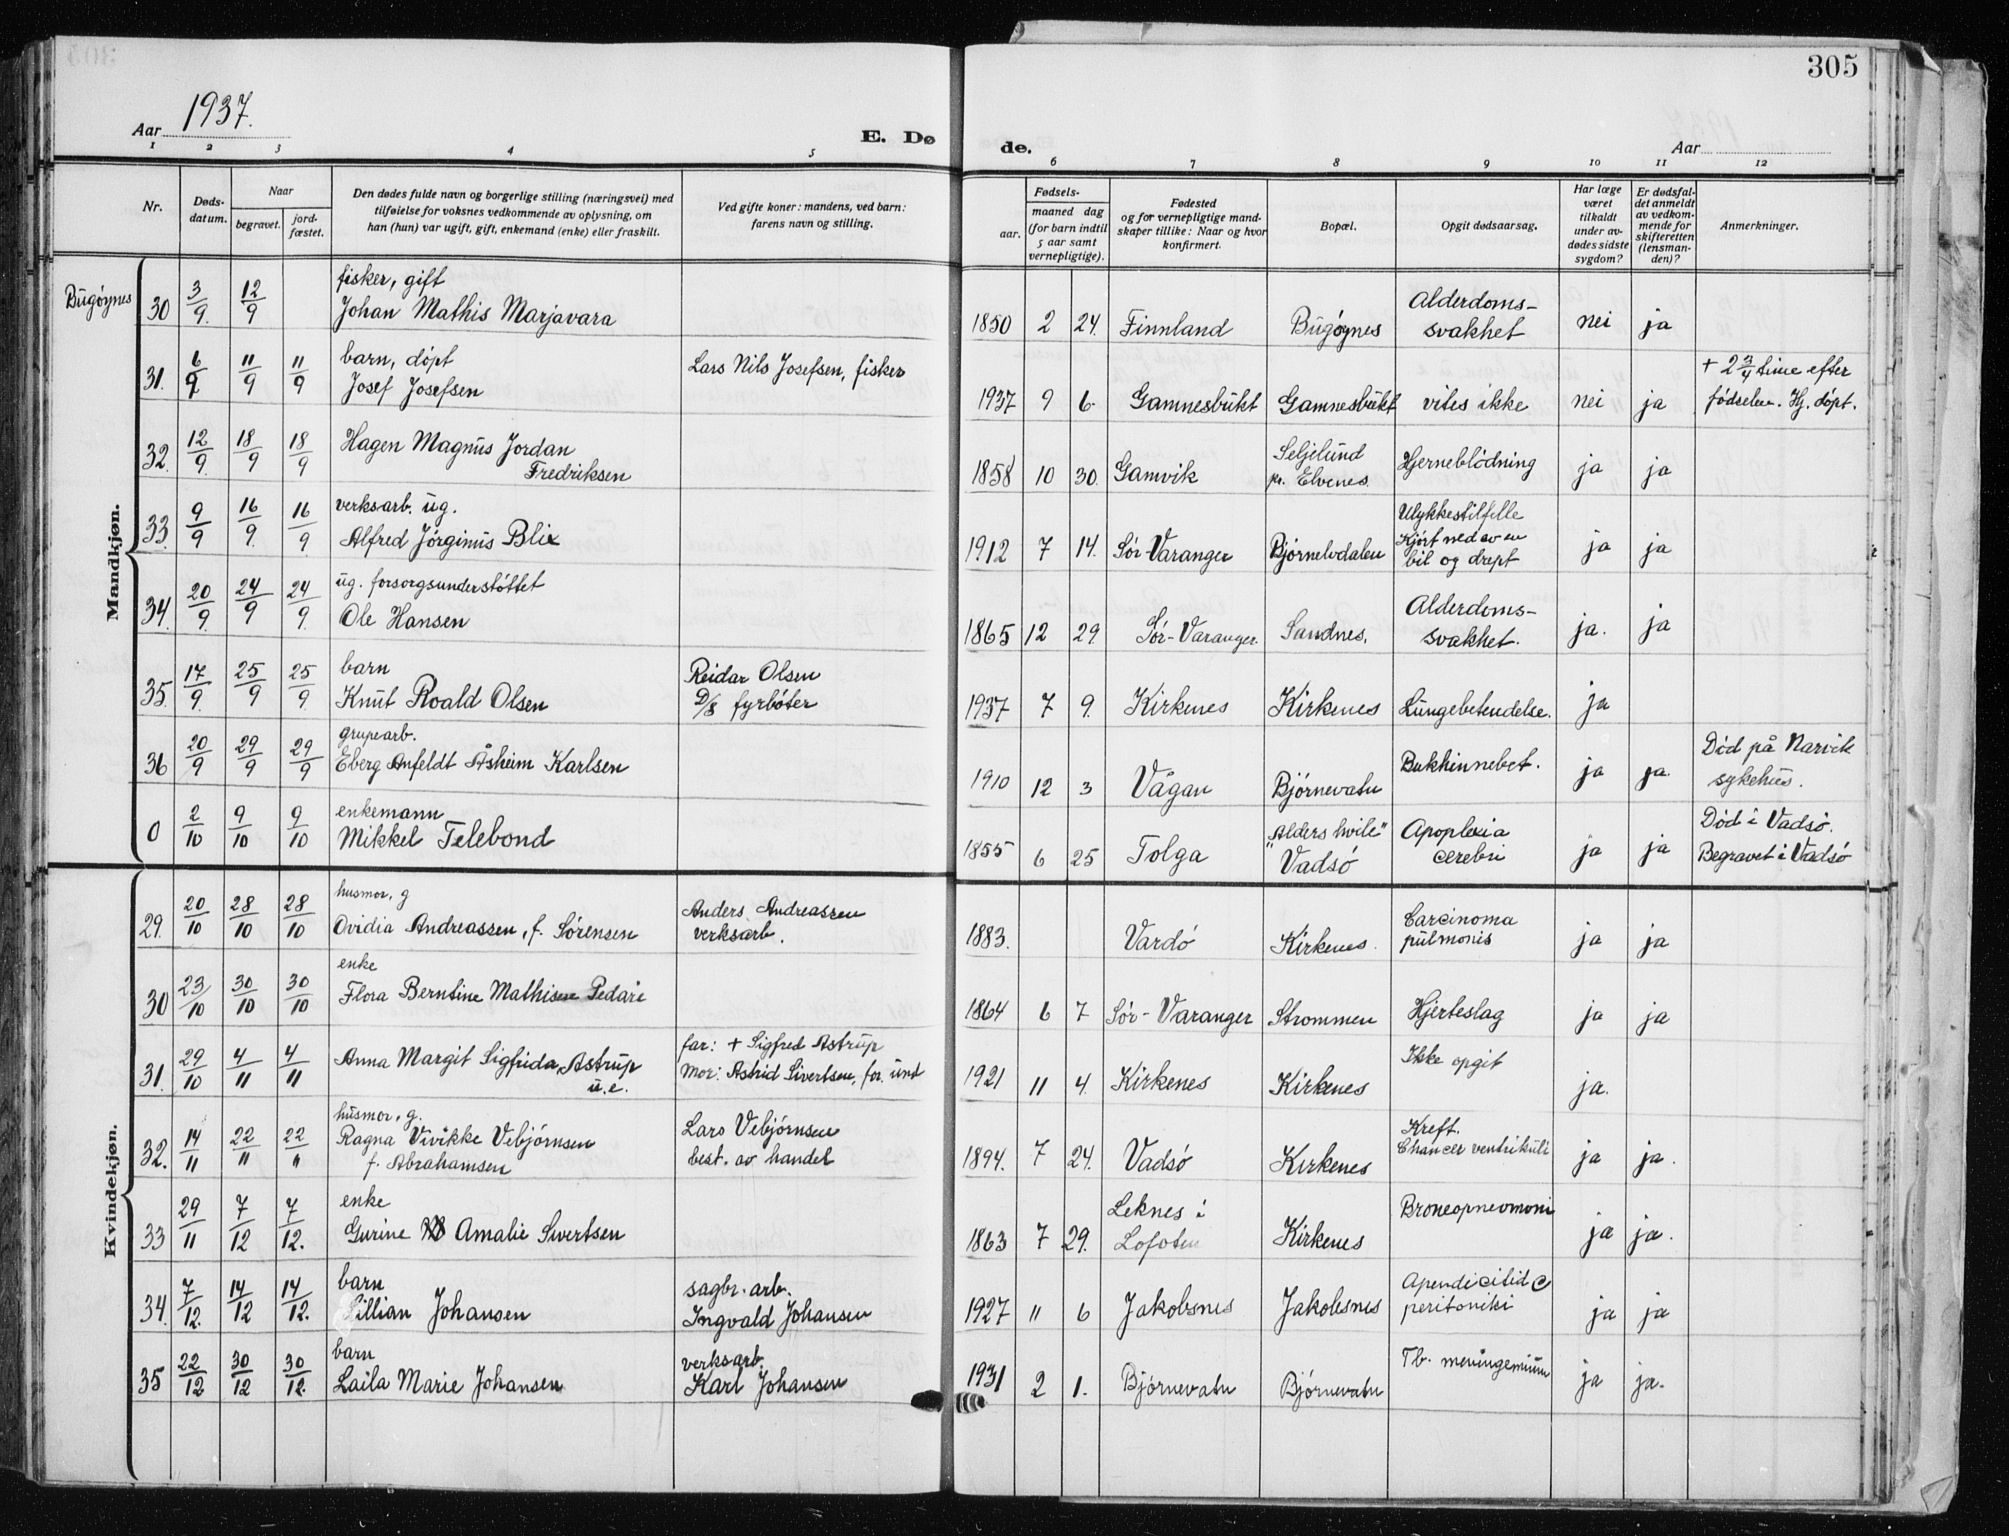 305
Aar 1937.
E. Døde.
Aar
1 2 3 4 5 6 7 8 9 10 11 12
Nr.
Døds-datum.
Naar
begravet.
jord-fæstet.
Den dødes fulde navn og borgerlige stilling (næringsvei) med
tilføielse for voksnes vedkommende av oplysning, om
han (hun) var ugift, gift, enkemand (enke) eller fraskilt.
Ved gifte koner: mandens, ved barn:
farens navn og stilling.
Fødsels-
aar.
maaned dag
(for barn indtil
5 aar samt
vernepligtige).
Fødested
og for vernepligtige mand-
skaper tillike: Naar og hvor
konfirmert.
Bopæl.
Opgit dødsaarsag.
Har læge
været
tilkaldt
under av-
dødes sidste
sygdom?
Er dødsfal-
det anmeldt
av vedkom-
mende for
skifteretten
(lensman-
den)?
Anmerkninger.
Mandkjøn.
Bugøynes
fisker, gift
30 3/9. 12/9 Johan Mathis Marjavara 1850 2 24. Finnland Bugøynes Alderdoms-svakhet nei ja
barn, døpt
31. 6/9 11/9 11/9 Josef Josefsen Lars Nils Josefsen, fisker 1937 9 6. Gamnesbukt Gamnesbukt vites ikke nei ja + 2 3/4 time efter
fødselen. Hj. døpt.
32. 12/9. 18/9 18/9 Hagen Magnus Jordan
Fredriksen 1858 10 30. Gamvik Seljelund
pr. Elvenes. Hjerneblødning ja ja
verksarb. ug.
33. 9/9 16/9. 16/9 Alfred Jørginus Blix 1912 7 14. Sør-Varanger Bjørnelvdalen Ulykkestilfelle
Kjørt ned av en
bil og drept ja ja
ug. forsorgsunderstøttet
34. 20/9. 24/9 24/9. Ole Hansen 1865 12 29 Sør-Varanger Sandnes. Alderdoms-
svakhet. ja. ja
barn
35. 17/9. 25/9 25/9. Knut Roald Olsen Reidar Olsen
D/S fyrbøter 1937 7 9. Kirkenes Kirkenes Lungebetendelse. ja
grupearb.
36 20/9 29/9 29/9 Eberg Anfeldt Åsheim Karlsen 1910 12 3 Vågan Bjørnevatn Bukhinnebet. ja ja Død på Narvik
sykehus.
enkemann
0 2/10 9/10 9/10 Mikkel Telebond 1855 6 25 Tolga "Alders hvile"
Vadsø Apoplexia
cerebri ja ja Død i Vadsø.
Begravet i Vadsø
Kvindekjøn.
husmor, g
29. 20/10 28/10 28/10 Ovidia Andreassen, f. Sørensen Anders Andreassen
verksarb. 1883. Vardø Kirkenes. Carcinoma
pulmonis ja ja
enke
30 23/10 30/10 30/10 Flora Berntine Mathisen 1864 6 7 Sør-Varanger Strømmen Hjerteslag ja ja
31. 29/10 4/11 4/11 Anna Margit Sigfrida Astrup
u.e. far: + Sigfred Astrup
mor: Astrid Sivertsen, for. und 1921 11 4. Kirkenes Kirkenes Ikke opgit ja.
husmor, g.
32. 14/11 22/11 22/11 Ragna Vivikke Vebjørnsen
f. Abrahamsen Lars Vebjørnsen
best. av handel 1894. 7 24. Vadsø Kirkenes Kreft.
Chancer ventrikuli ja ja.
enke
33 29/11 7/12 7/12. Gurine Amalie Sivertsen 1863 7 29. Leknes i
Lofoten Kirkenes Broncopneomoni ja ja.
barn
34. 7/12. 14/12 14/12. Lillian Johansen sagbr. arb.
Ingvald Johansen 1927 11 6 Jakobsnes Jakobsnes Apendicitid c
peritonitis ja ja
barn
35 22/12 30/12 30/12. Laila Marie Johansen verksarb.
Karl Johansen 1931 2 1. Bjørnevatn Bjørnevatn Tb. ja ja.